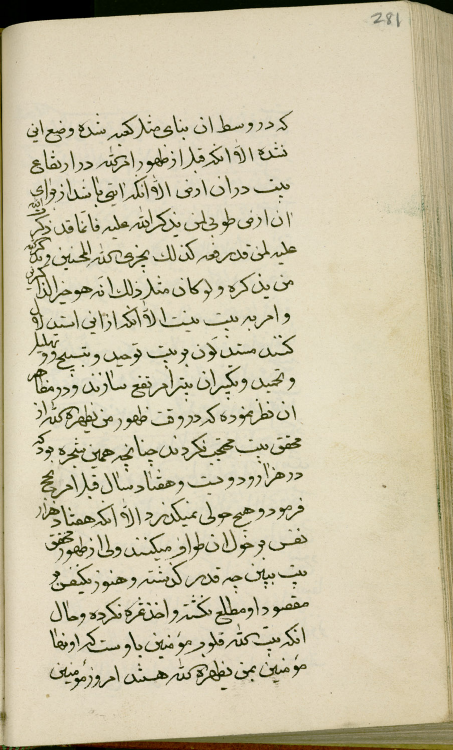 281
که در وسط ان بنای مثل کعبه شده وضع این
نشده الا انکه قبل از ظهور امر الله در ارتفاع
بیت در ان ارض الا انکه ایتی باشد از برای
ان ارض طوبی لمن یذکر الله علیه فانما قد ذکر الله
علیه لمن قدر فیه کذلک یجزی الله المحسنین ویذکر الله
من یذکره ولو کان مثل ذلک انه هو خیر الذاکرین
و امر به بیت نیست الا انکه از انی استدلال
کنند مستدلون بر بیت توحید و تسبیح و تهلیل
و تحمید و تکبیر ان بیت را مرتفع سازند و در مظاهر
ان نظر نموده که در وقت ظهور من یظهره الله از
محقق بیت محتجب نگردند چنانچه همین ثمره بود که
در هزار و دویست و هفتاد سال قبل امر بحج
فرمود و هیچ حولی نمیگذرد الا انکه هفتاد هزار
نفس بر حول ان طواف میکنند ولی از ظهور محقق
بیت ببین چه قدر گذشته و هنوز یکنفس بر
مقصود او مطلع نگشته و اخذ ثمره نکرده و حال
انکه بیت الله قلوب مؤمنین باوست که اونها
مؤمنین بمن یظهره الله هستند امروز مؤمنین